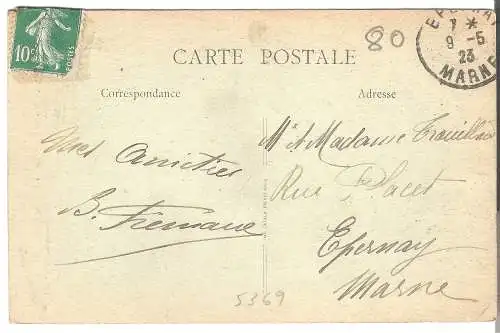 10c
80
EPERNAY
7 *
9 -5
23
MARNE
CARTE POSTALE
Correspondance
Adresse
Amitiés
B.
Mr et Madame
Rue Placet
Epernay
Marne
5369